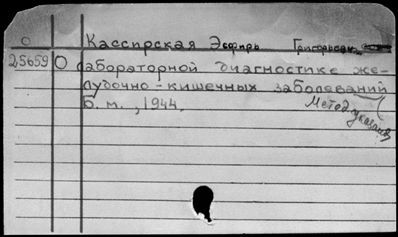 О Кассирская Эсфирь Григорьевна
25659 О лабораторной диагностике же-
лудочно-кишечных заболеваний
Б. м., 1944.
Метод. указания